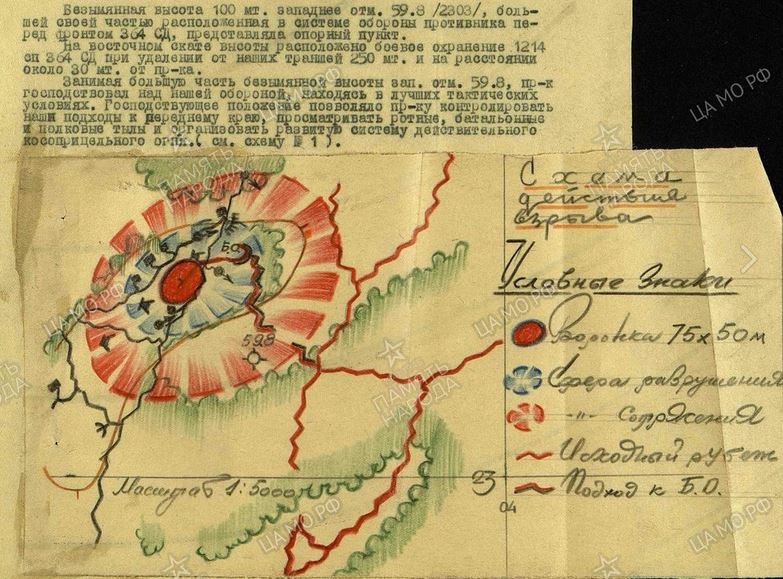 Безымянная высота 100 мт. западнее отм. 59.8 /2303/, боль-
шей своей частью расположенная в системе обороны противника пе-
ред фронтом 364 СД, представляла опорный пункт.
На восточном скате высоты расположено боевое охранение 1214
сп 364 СД при удалении от наших траншей 250 мт. и на расстоянии
около 30 мт. от пр-ка.
Занимая большую часть безымянной высоты зап. отм. 59.8, пр-к
господствовал над нашей обороной, находясь в лучших тактических
условиях. Господствующее положение позволяло пр-ку контролировать
наши подходы к переднему краю, просматривать ротные, батальонные
и полковые тылы и организовать развитую систему действительного
косоприцельного огня.( см. схему № 1 ).
Схема
действия
взрыва
Условные Знаки
Воронка 75х50м
Сфера разрушения
-"- сотрясения
Исходный рубеж
Подход к Б.О.
Б.О.
59.8
Масштаб 1:5000
23
04
ПАМЯТЬ НАРОДА
ЦА МО РФ